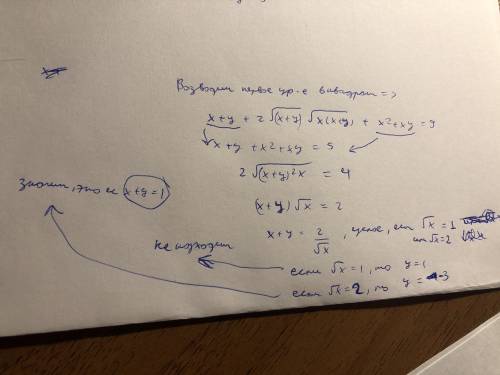 Возводим первое ур-е в квадрат =>
x+y + 2√(x+y) √x(x+y) + x²+xy = 9
x+y + x²+xy = 5
2√(x+y)²x = 4
(x+y)√x = 2
x+y = 2/√x, целое, если √x = 1
или √x = 2
если √x = 1, то y = 1
не подходит
если √x = 2, то y = -3
Значит, это x+y=1